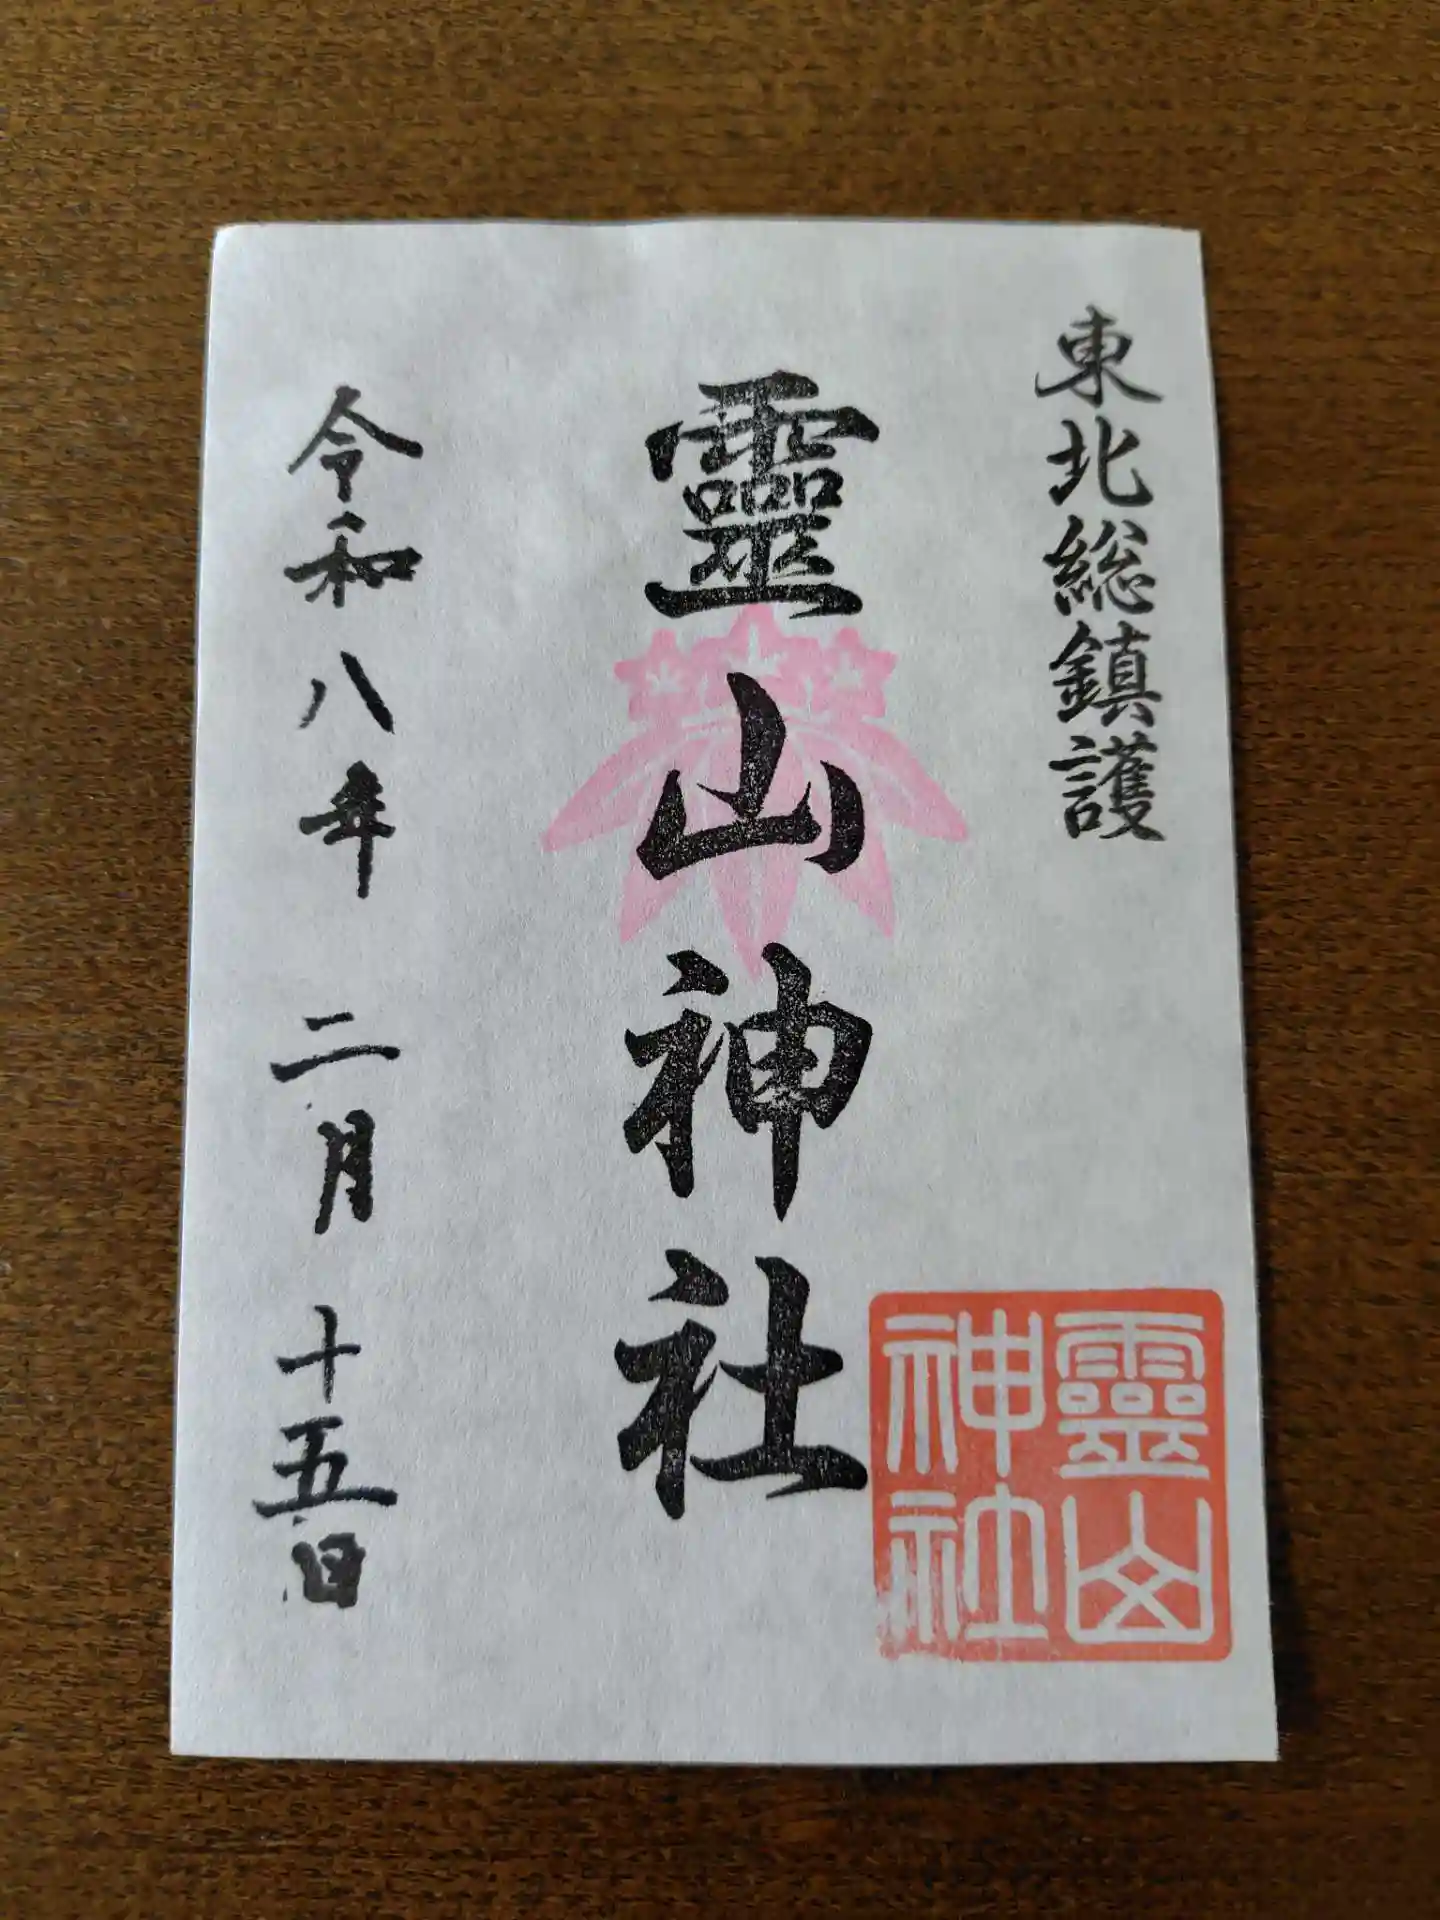 東北総鎮護
靈山神社
靈山
神社
令和八年二月十五日